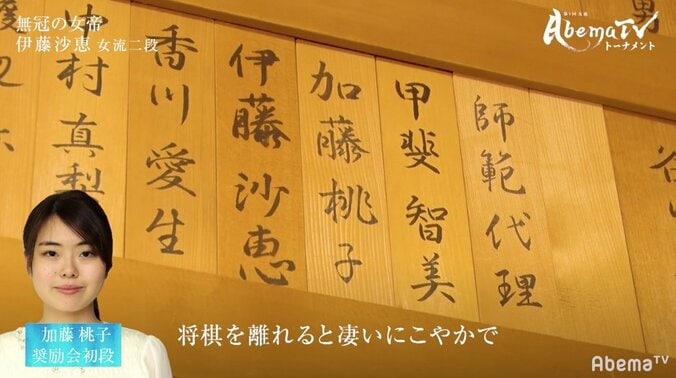 無冠の女帝
伊藤沙恵 女流二段
AbemaTV
トーナメント
師範代理
甲斐智美
加藤桃子
伊藤沙恵
香川愛生
中村真梨
加藤 桃子
奨励会初段
将棋を離れると凄いにこやかで
AbemaTV